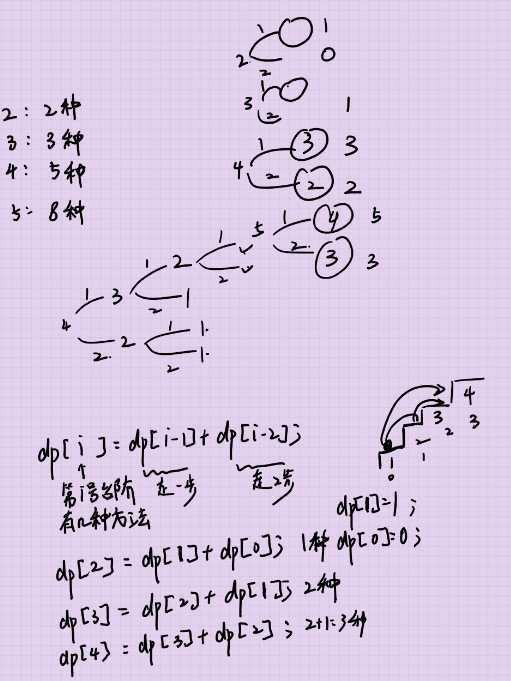 1 1
2 2 0
3 1 2 1
2: 2种
3: 3种
4: 5种
5: 8种
4 1 3 3
2 2 2
5 1 4 5
2 3 3
4 1 3 1 2 1
2
2 1
2 2 1 1
2 1
4
3 3
2 2
1 1
0
dp[i] = dp[i-1] + dp[i-2];
↑ 走一步 走2步
第i号台阶
有n种方法
dp[1]=1;
dp[0]=0;
dp[2] = dp[1] + dp[0]; 1种
dp[3] = dp[2] + dp[1]; 2种
dp[4] = dp[3] + dp[2]; 2+1=3种